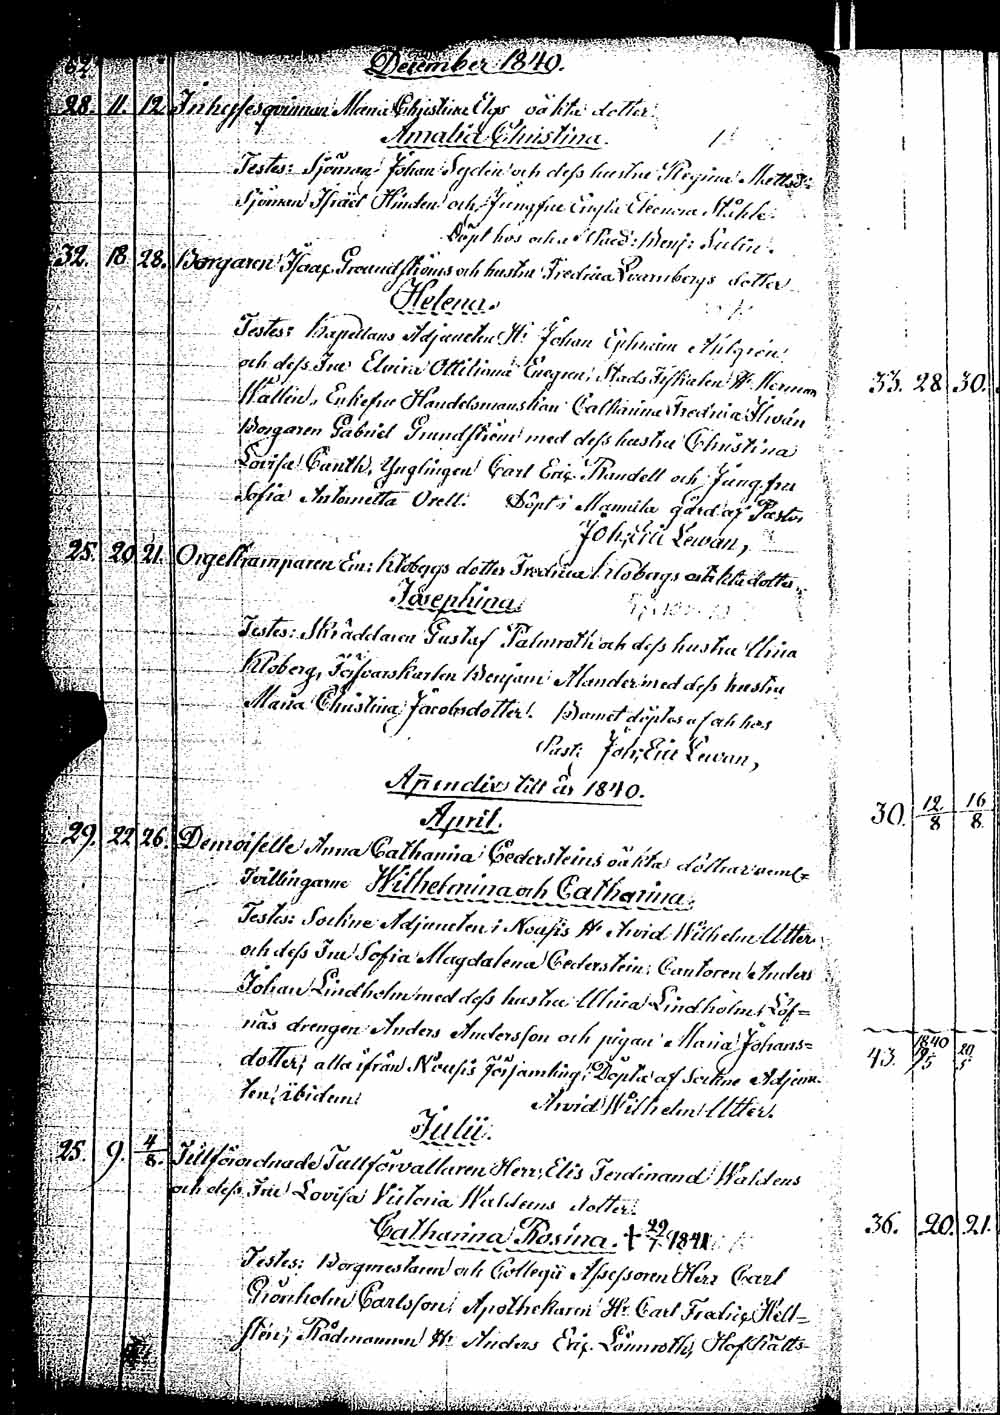 December 1840.
28. 11. 12. Inhysesqvinnan Maria Christina Elgs oäkta dotter
Amalia Christina.
Testes: Sjöman Johan Sejdin och dess hustru Regina Mattsd:
Sjöman Israel Hinden och Jungfru Engla Eleonora Ståhle.
Döpt hos och af Past: Benj: Lulin.
32. 18 28. Borgaren Isaac Graundströms och hustru Fredrica Qvarnbergs dotter
Helena.
Testes: Kapellans Adjuncten Hr Johan Ephraim Ahlgren
och dess Fru Elvira Ottiliana Enegren, Stads Fiskalen Hr Herman
Wallin, Enkefru Handelsmanskan Catharina Fredrica Ilwán
Borgaren Gabriel Grundström med dess hustru Christina
Lovisa Canth, Ynglingen Carl Eric Randell och Jungfru
Sofia Antoinetta Orell. Döpt i Mamila gård af Pastor
Joh: Eric Lewan,
25. 20 21. Orgeltramparen Em: Klobergs dotter Fredrica Klobergs oäkta dotter
Josephina
Testes: Skräddaren Gustaf Palmroth och dess hustru Ulrica
Kloberg, Försvarskarlen Benjam: Mander med dess hustru
Maria Christina Jacobsdotter. Barnet döptes af och hos
Past: Joh: Eric Lewan,
Apendix till år 1840.
April.
29. 22 26. Demoiselle Anna Catharina Cedersteins oäkta döttrar neml=
Tvillingarne Wilhelmina och Catharina.
Testes: Sockne Adjuncten i Nousis Hr Arvid Wilhelm Utter
och dess Fru Sofia Magdalena Cederstein; Cantoren Anders
Johan Lindholm med dess hustru Ulrica Lindholm; Löf=
näs drengen Anders Andersson och pigan Maria Johans=
dotter; alla ifrån Nousis Församling; Döpta af Sockne Adjunc
ten, ibidem Arvid Wilhelm Utter.
Julii.
25. 9. 4/8. Tillförordnade Tullförvaltaren Herr Elis Ferdinand Waldens
och dess Fru Lovisa Victoria Waldens dotter
Catharina Rosina. † 29/7 1841
Testes: Borgmestaren och Collegii Assessoren Herr Carl
Grönholm Carlsson, Apothekaren Hr Carl Fredric Hell=
stén; Rådmannen Hr Anders Eric Lönnroth, Hof Rätts-
33. 28 30.
30. 12/8 16/8
43. 1840 9/5 20/5
36. 20. 21.